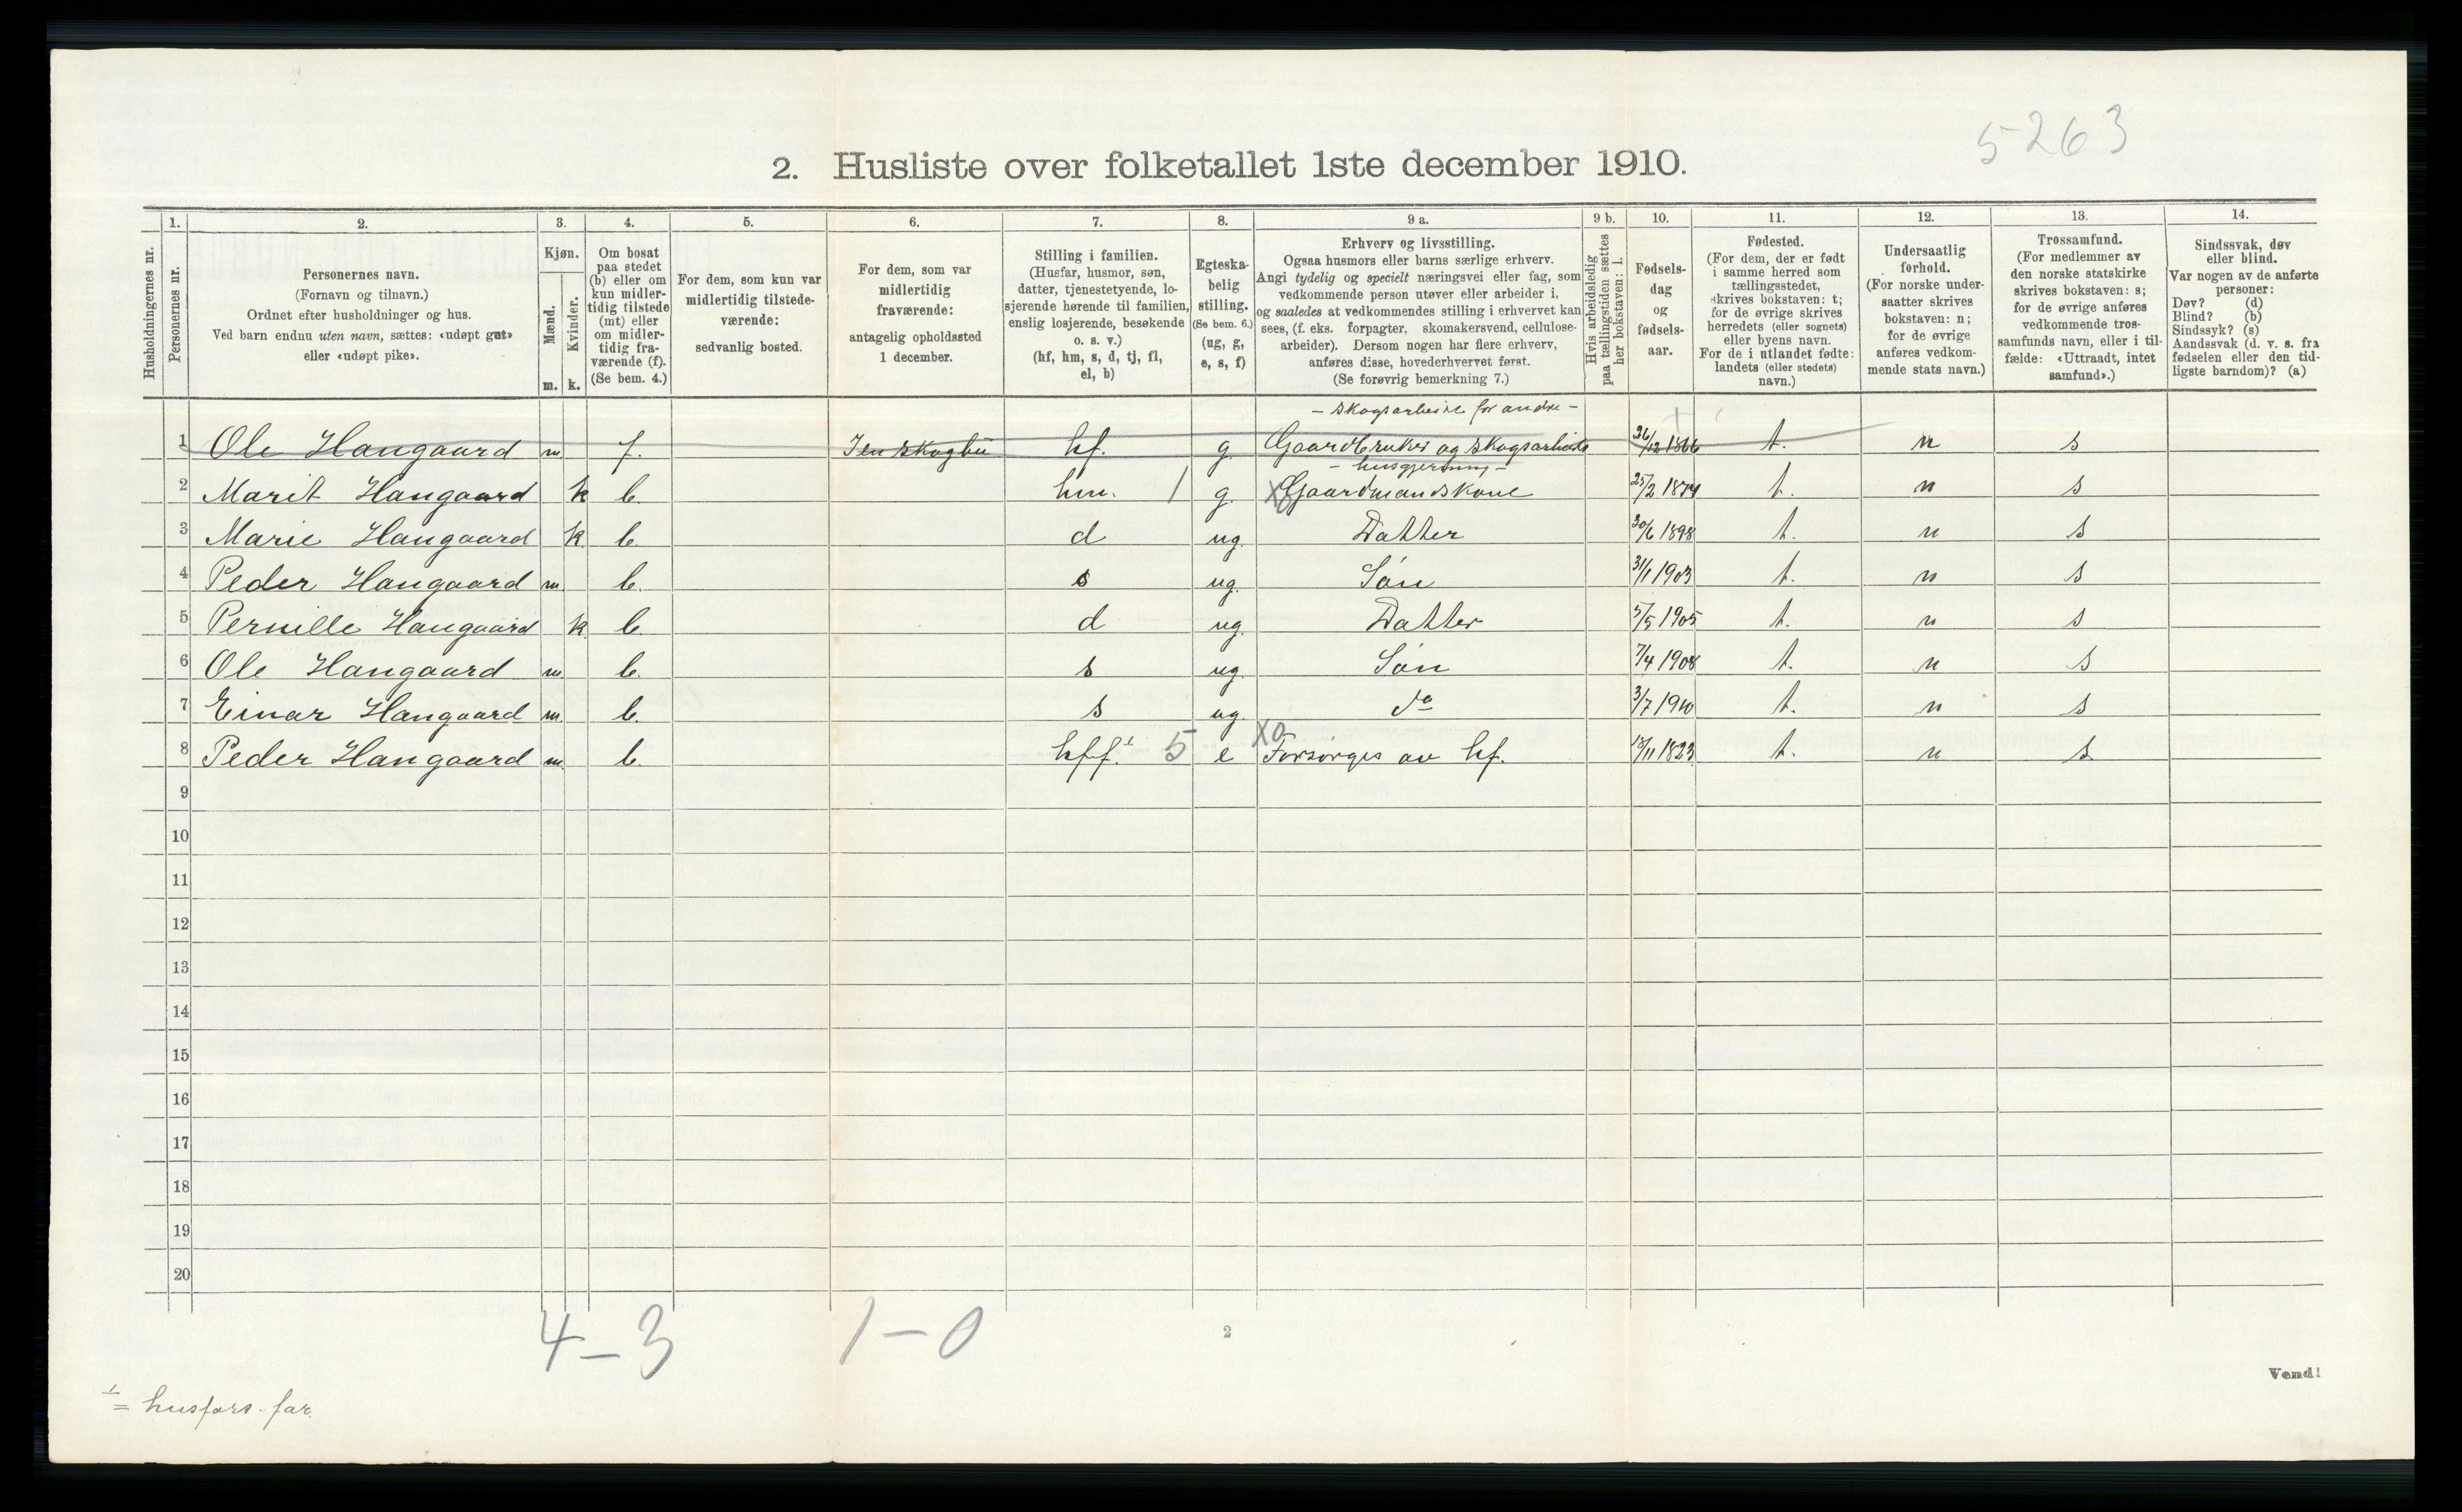 5263
2. Husliste over folketallet 1ste december 1910.
1. 2. 3. 4. 5. 6. 7. 8. 9 a. 9 b. 10. 11. 12. 13. 14.
Husholdningernes nr.
Personernes nr.
Personernes navn.
(Fornavn og tilnavn.)
Ordnet efter husholdninger og hus.
Ved barn endnu uten navn, sættes: «udøpt gut»
eller «udøpt pike».
Kjøn.
Mænd.
m.
Kvinder.
k.
Om bosat
paa stedet
(b) eller om
kun midler-
tidig tilstede
(mt) eller
om midler-
tidig fra-
værende (f).
(Se bem. 4.)
For dem, som kun var
midlertidig tilstede-
værende:
sedvanlig bosted.
For dem, som var
midlertidig
fraværende:
antagelig opholdssted
1 december.
Stilling i familien.
(Husfar, husmor, søn,
datter, tjenestetyende, lo-
sjerende hørende til familien,
enslig losjerende, besøkende
o. s. v.)
(hf, hm, s, d, tj, fl,
el, b)
Egteska-
belig
stilling.
(Se bem. 6.)
(ug, g,
e, s, f)
Erhverv og livsstilling.
Ogsaa husmors eller barns særlige erhverv.
Angi tydelig og specielt næringsvei eller fag, som
vedkommende person utøver eller arbeider i,
og saaledes at vedkommendes stilling i erhvervet kan
sees, (f. eks. forpagter, skomakersvend, cellulose-
arbeider). Dersom nogen har flere erhverv,
anføres disse, hovederhvervet først.
(Se forøvrig bemerkning 7.)
Hvis arbeidsledig
paa tællingstiden sættes
her bokstaven: l.
Fødsels-
dag
og
fødsels-
aar.
Fødested.
(For dem, der er født
i samme herred som
tællingsstedet,
skrives bokstaven: t;
for de øvrige skrives
herredets (eller sognets)
eller byens navn.
For de i utlandet fødte:
landets (eller stedets)
navn.)
Undersaatlig
forhold.
(For norske under-
saatter skrives
bokstaven: n;
for de øvrige
anføres vedkom-
mende stats navn.)
Trossamfund.
(For medlemmer av
den norske statskirke
skrives bokstaven: s;
for de øvrige anføres
vedkommende tros-
samfunds navn, eller i til-
fælde: «Uttraadt, intet
samfund».)
Sindssvak, døv
eller blind.
Var nogen av de anførte
personer:
Døv? (d)
Blind? (b)
Sindssyk? (s)
Aandssvak (d. v. s. fra
fødselen eller den tid-
ligste barndom)? (a)
- skogsarbeide for andre -
1 Ole Haugaard m f. I en skogbu hf. g. Gaardbruker og skogsarbeide 26/12 1866 t. n s
- husgjerning -
2 Marit Haugaard k b. hm. 1 g. X0 Gaardmandskone 25/2 1874 t. n s
3 Marie Haugaard k b. d ug. Datter 30/6 1898 t. n s
4 Peder Haugaard m b. s ug. Søn 31/1 1903 t. n s
5 Pernille Haugaard k b. d ug. Datter 5/5 1905 t. n s
6 Ole Haugaard m b. s ug. Søn 7/4 1908 t. n s
7 Einar Haugaard m. b. s ug. do 3/7 1910 t. n s
8 Peder Haugaard m b. hff.¹ 5 e X0 Forsørges av hf. 13/11 1823 t. n s
9
10
11
12
13
14
15
16
17
18
19
20
4-3 1-0
2
Vend!
1 = husfars-far.